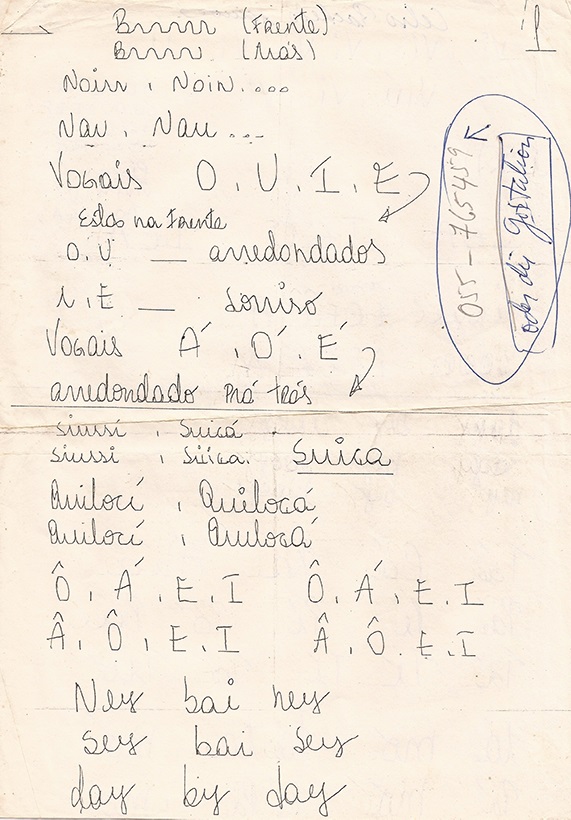 Brrrrr (Frente)
Brrrrr (trás)
1
Noin , Noin....
Nau , Nau ...
Vogais O , U , I , E
Estas na Frente
O.U — arredondados
i.E — Sorriso
Vogais Á , Ó , É
arredondado prá trás
siussi , Suicá .
siussi , Suica. Suica
Quilocí , Quilocá
Quilocí , Quilocá
Ô , Á , E , I Ô , Á , E , I
Â , Ô , E , I Â , Ô , E , I
Ney bai ney
Sey bai Sey
day by day
055 - 765459